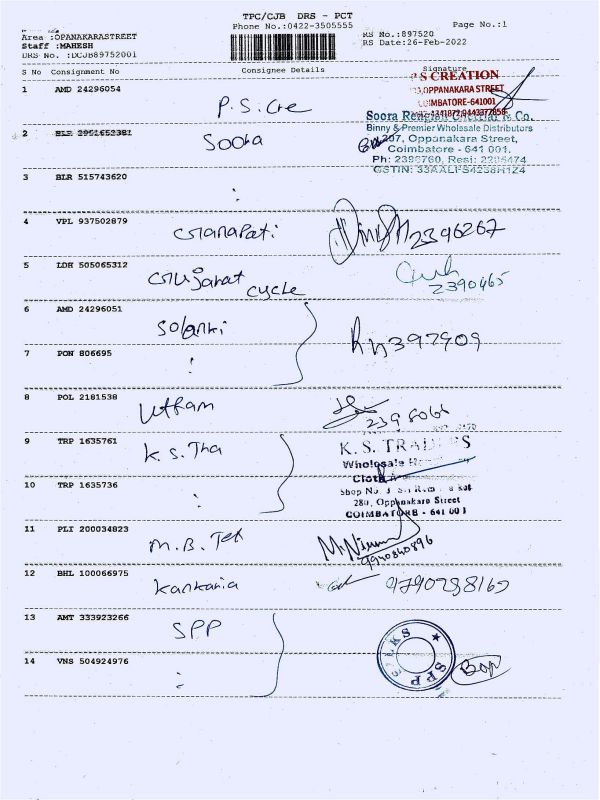 TPC/CJB DRS - PCT
Phone No.:0422-3505555
Page No.:1
Area :OPANAKARASTREET
Staff :MAHESH
DRS No. :DCJB89752001
RS No.:897520
RS Date:26-Feb-2022
S No Consignment No Consignee Details Signature
1 AMD 24296054 P.S.Cre
P S CREATION
OPPANAKARA STREET
COIMBATORE-641001
2 BLE 3951652381 Soora
Soora & Co.
Binny & Premier Wholesale Distributors
207, Oppanakara Street,
Coimbatore - 641 001.
Ph: 2396760, Resi: 2206474
GSTIN: 33AALFS4238H1Z4
3 BLR 515743620 :
4 VPL 937502879 Ganapati 2396267
5 LDH 505065312 Gujarat cycle 2390465
6 AMD 24296051 Solanki
7 PON 806695 : 397909
8 POL 2181538 Uttam 2398066
9 TRP 1635761 K.S.Tha
K. S. TRADERS
Wholesale
Cloth
10 TRP 1635736 :
Shop No. 3
280, Oppanakara Street
COIMBATORE - 641 001
11 PLI 200034823 M.B. Tex 9940840896
12 BHL 100066975 Kankaria 9790288162
13 AMT 333923266 SPP
14 VNS 504924976 :
SPP